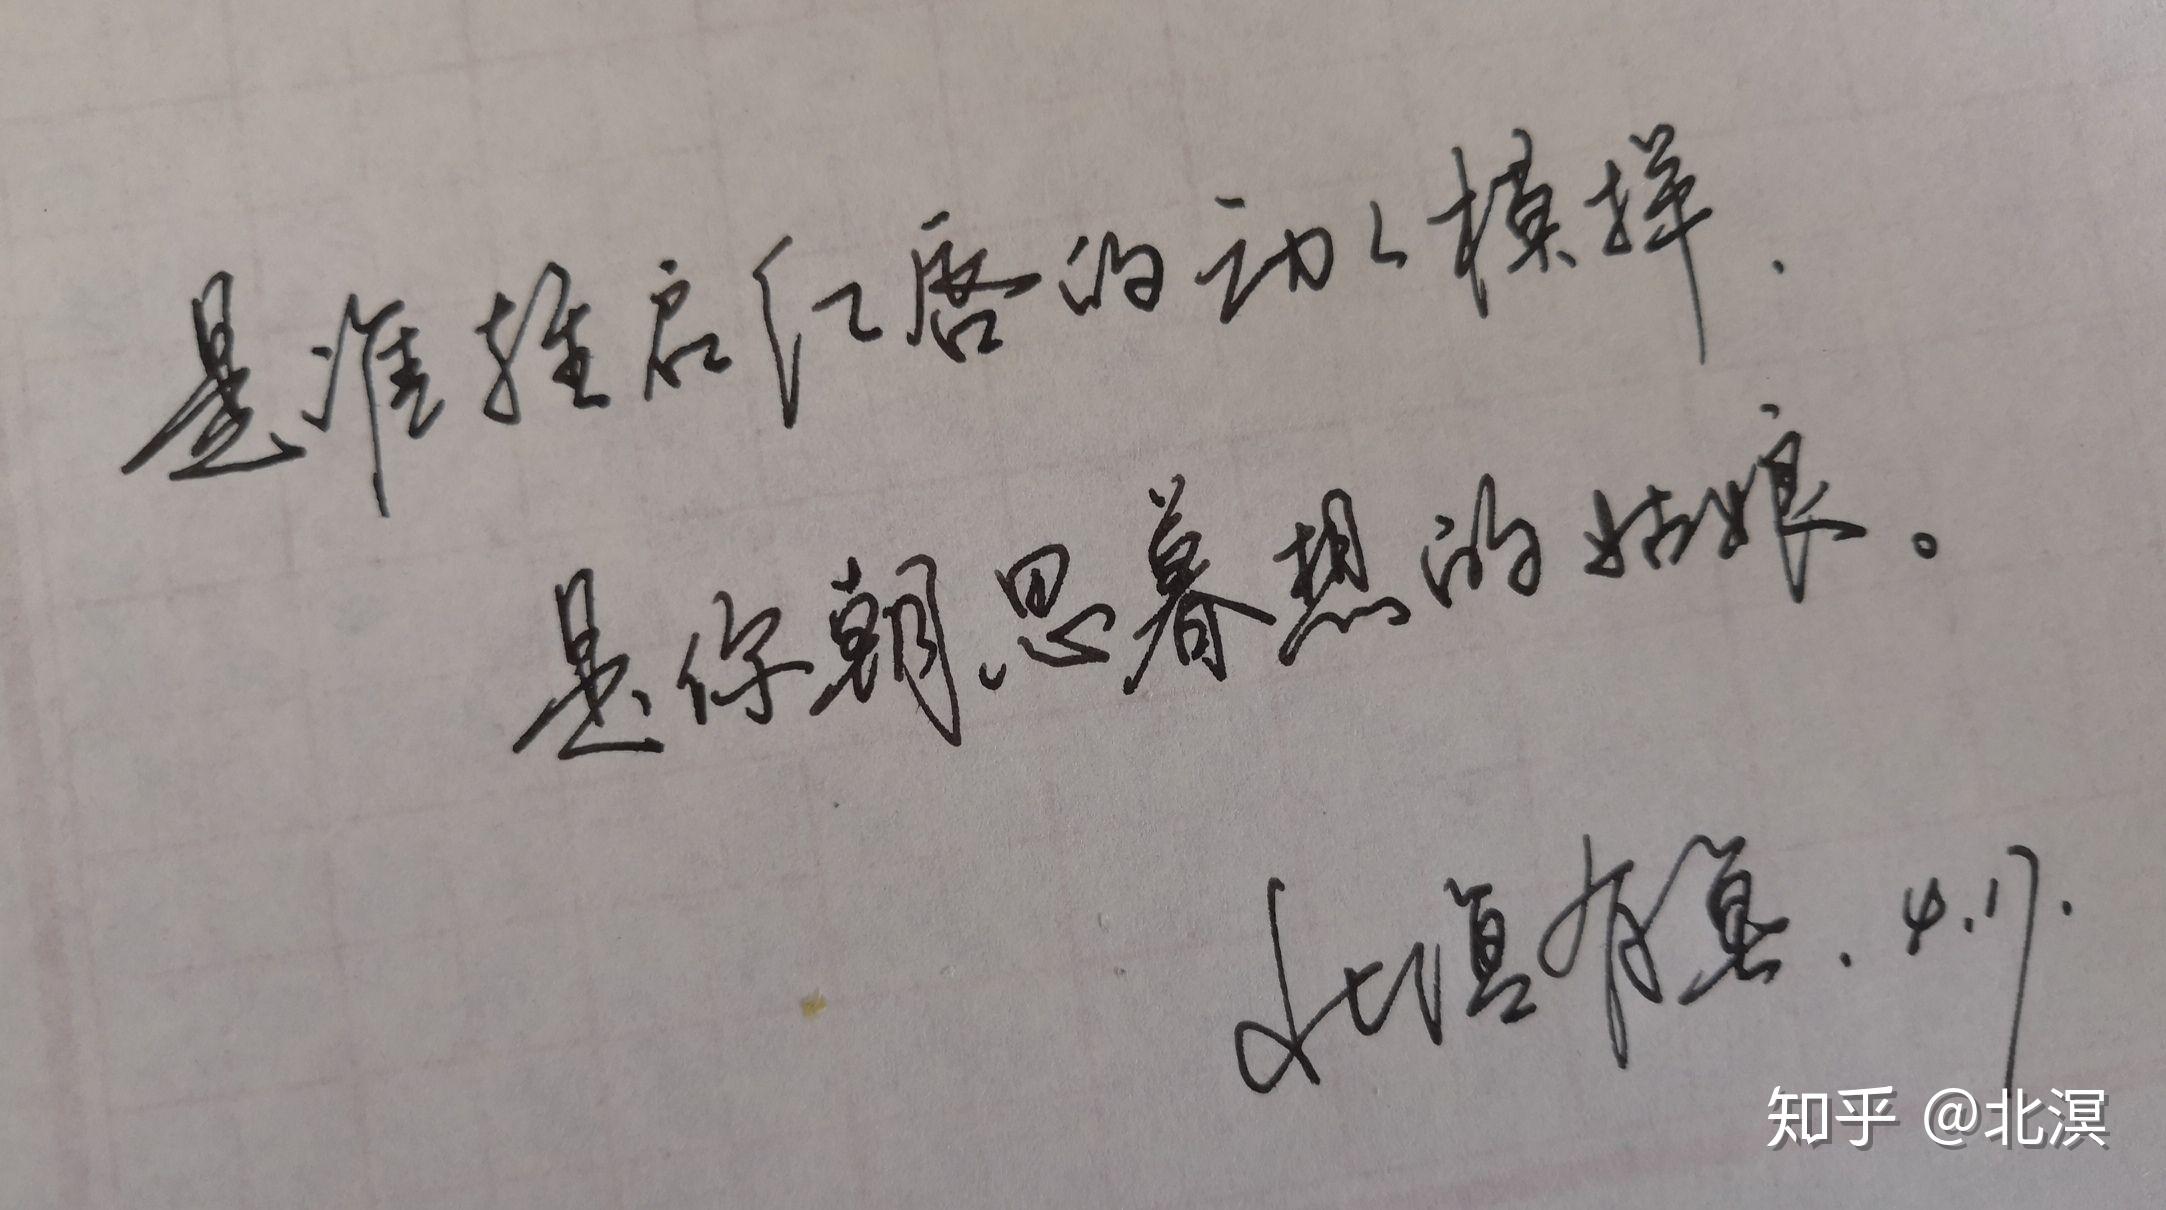 是谁推启红唇的动人模样.
是你朝思暮想的姑娘。
北溟有鱼. 4.17.
知乎 @北溟